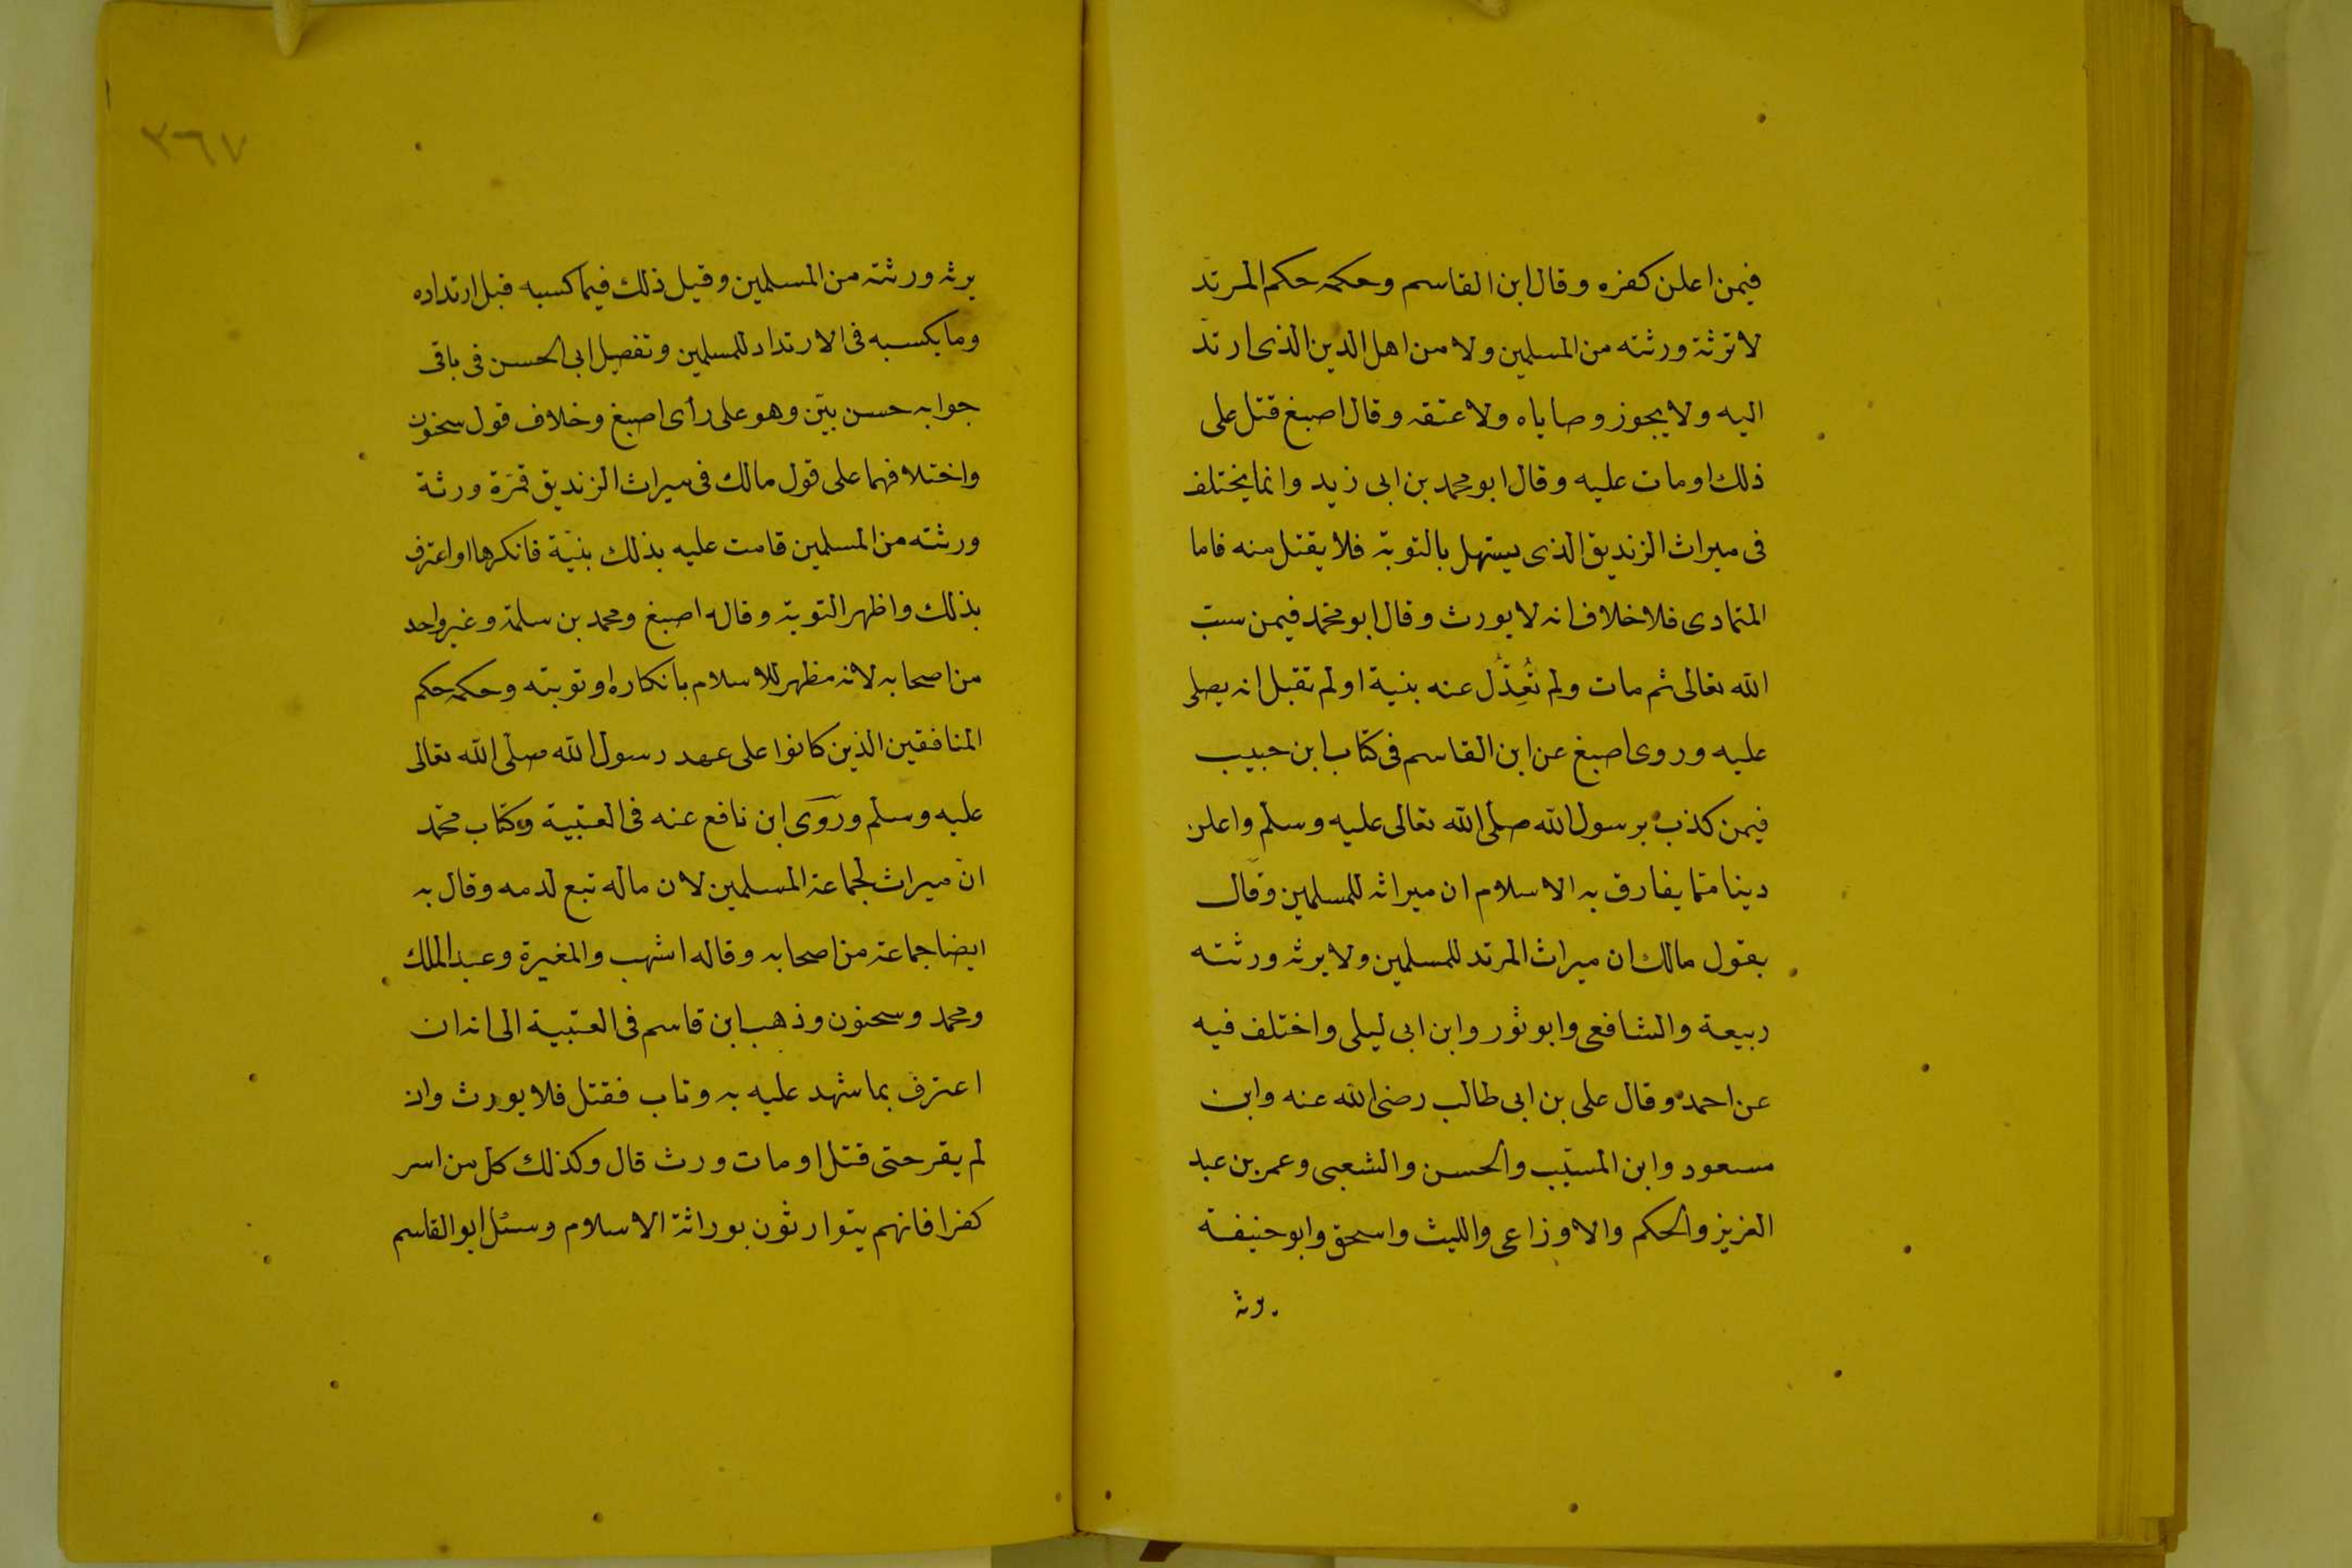 فيمن اعلن كفره وقال ابن القاسم وحكمه حكم المرتد
لا ترثه ورثته من المسلمين ولا من اهل الدين الذى ارتد
اليه ولا يجوز وصاياه ولا عتقه وقال اصبغ قتل على
ذلك او مات عليه وقال ابو محمد بن ابى زيد وانما يختلف
فى ميراث الزنديق الذى يستهل بالتوبة فلا يقتل منه فاما
المتمادى فلا خلاف انه لا يورث وقال ابو محمد فيمن سب
الله تعالى ثم مات ولم تُعَدَّل عنه بنية او لم تقبل انه يصلى
عليه وروى اصبغ عن ابن القاسم فى كتاب ابن حبيب
فيمن كذب برسول الله صلى الله تعالى عليه وسلم واعلن
دينا مما يفارق به الاسلام ان ميراثه للمسلمين وقال
بقول مالك ان ميراث المرتد للمسلمين ولا يرثه ورثته
ربيعة والشافعى وابو ثور وابن ابى ليلى واختلف فيه
عن احمد وقال على بن ابى طالب رضى الله عنه وابن
مسعود وابن المسيّب والحسن والشعبى وعمر بن عبد
العزيز والحكم والاوزاعى والليث واسحق وابو حنيفة
يرثه
٣٦٧
يرثه ورثته من المسلمين وقيل ذلك فيما كسبه قبل ارتداده
وما يكسبه فى الارتداد للمسلمين وتفصيل ابى الحسن فى باقى
جوابه حسن بيّن وهو على رأى اصبغ وخلاف قول سحنون
واختلافهما على قول مالك فى ميراث الزنديق فمرّة ورثة
ورثته من المسلمين قامت عليه بذلك بنيّة فانكرها او اعترف
بذلك واظهر التوبة وقاله اصبغ ومحمد بن سلمة وغير واحد
من اصحابه لانه مظهر للاسلام بانكاره او توبته وحكمه حكم
المنافقين الذين كانوا على عهد رسول الله صلى الله تعالى
عليه وسلم وروى ابن نافع عنه فى العتبية وكتاب محمد
انّ ميراث لجماعة المسلمين لان ماله تبع لدمه وقال به
ايضا جماعة من اصحابه وقاله اشهب والمغيرة وعبد الملك
ومحمد وسحنون وذهب ابن قاسم فى العتبية الى انه ان
اعترف بما شهد عليه به وتاب فقتل فلا يورث وان
لم يقر حتى قتل او مات ورث قال وكذلك كل من اسر
كفرا فانهم يتوارثون بوراثة الاسلام وسئل ابو القاسم